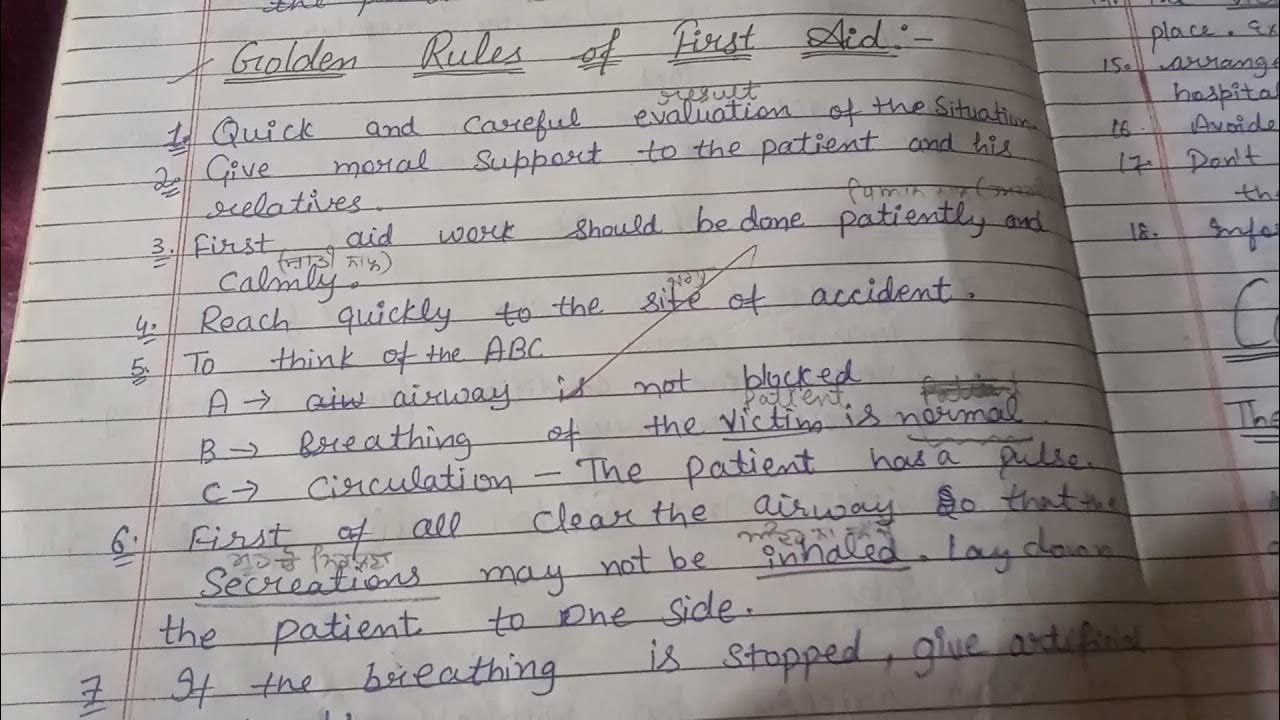 the
Golden Rules of First Aid:-
result
1. Quick and careful evaluation of the Situation.
2. Give moral support to the patient and his
relatives.
3. First aid work should be done patiently and
Calmly.
4. Reach quickly to the site of accident.
5. To think of the ABC
A → aiw airway is not blocked
patient
B → Breathing of the victim is normal
C → Circulation - The patient has a pulse.
6. First of all clear the airway So that the
Secreations may not be inhaled. Lay down
the patient to one side.
7 If the breathing is stopped, give artificial
place. Ex
15. arrang
hospita
16. Avoide
17. Don't
th
18. Info
C
The